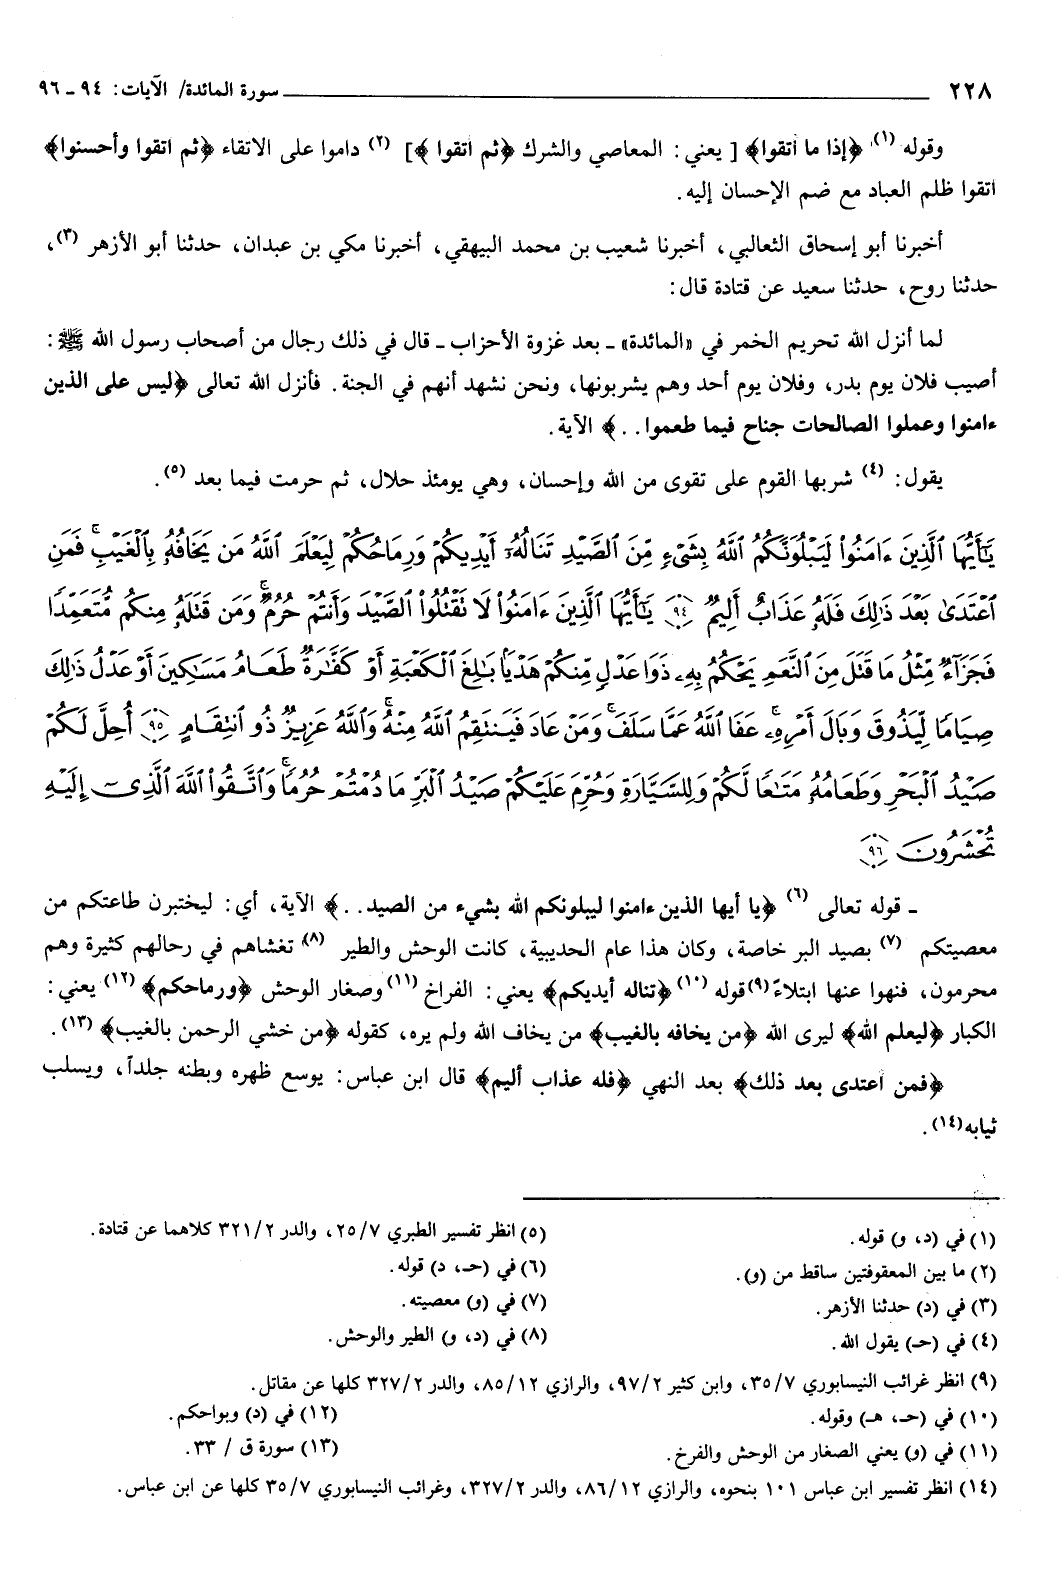 ٢٢٨ سورة المائدة/ الآيات: ٩٤ ـ ٩٦
وقوله (١) ﴿إذا ما اتقوا﴾ [ يعني: المعاصي والشرك ﴿ثم اتقوا ﴾] (٢) داموا على الاتقاء ﴿ثم اتقوا وأحسنوا﴾
اتقوا ظلم العباد مع ضم الإحسان إليه.
أخبرنا أبو إسحاق الثعالبي، أخبرنا شعيب بن محمد البيهقي، أخبرنا مكي بن عبدان، حدثنا أبو الأزهر (٣)،
حدثنا روح، حدثنا سعيد عن قتادة قال:
لما أنزل الله تحريم الخمر في «المائدة» ـ بعد غزوة الأحزاب ـ قال في ذلك رجال من أصحاب رسول الله ﷺ:
أصيب فلان يوم بدر، وفلان يوم أحد وهم يشربونها، ونحن نشهد أنهم في الجنة. فأنزل الله تعالى ﴿ليس على الذين
ءامنوا وعملوا الصالحات جناح فيما طعموا..﴾ الآية.
يقول: (٤) شربها القوم على تقوى من الله وإحسان، وهي يومئذ حلال، ثم حرمت فيما بعد (٥).
يَٰٓأَيُّهَا ٱلَّذِينَ ءَامَنُوا۟ لَيَبْلُوَنَّكُمُ ٱللَّهُ بِشَىْءٍ مِّنَ ٱلصَّيْدِ تَنَالُهُۥٓ أَيْدِيكُمْ وَرِمَاحُكُمْ لِيَعْلَمَ ٱللَّهُ مَن يَخَافُهُۥ بِٱلْغَيْبِ ۚ فَمَنِ
ٱعْتَدَىٰ بَعْدَ ذَٰلِكَ فَلَهُۥ عَذَابٌ أَلِيمٌ ۝٩٤ يَٰٓأَيُّهَا ٱلَّذِينَ ءَامَنُوا۟ لَا تَقْتُلُوا۟ ٱلصَّيْدَ وَأَنتُمْ حُرُمٌ ۚ وَمَن قَتَلَهُۥ مِنكُم مُّتَعَمِّدًا
فَجَزَآءٌ مِّثْلُ مَا قَتَلَ مِنَ ٱلنَّعَمِ يَحْكُمُ بِهِۦ ذَوَا عَدْلٍ مِّنكُمْ هَدْيًۢا بَٰلِغَ ٱلْكَعْبَةِ أَوْ كَفَّٰرَةٌ طَعَامُ مَسَٰكِينَ أَوْ عَدْلُ ذَٰلِكَ
صِيَامًا لِّيَذُوقَ وَبَالَ أَمْرِهِۦ ۗ عَفَا ٱللَّهُ عَمَّا سَلَفَ ۚ وَمَنْ عَادَ فَيَنتَقِمُ ٱللَّهُ مِنْهُ ۗ وَٱللَّهُ عَزِيزٌ ذُو ٱنتِقَامٍ ۝٩٥ أُحِلَّ لَكُمْ
صَيْدُ ٱلْبَحْرِ وَطَعَامُهُۥ مَتَٰعًا لَّكُمْ وَلِلسَّيَّارَةِ ۖ وَحُرِّمَ عَلَيْكُمْ صَيْدُ ٱلْبَرِّ مَا دُمْتُمْ حُرُمًا ۗ وَٱتَّقُوا۟ ٱللَّهَ ٱلَّذِىٓ إِلَيْهِ
تُحْشَرُونَ ۝٩٦
ـ قوله تعالى (٦) ﴿يا أيها الذين ءامنوا ليبلونكم الله بشيء من الصيد..﴾ الآية، أي: ليختبرن طاعتكم من
معصيتكم (٧) بصيد البر خاصة، وكان هذا عام الحديبية، كانت الوحش والطير (٨) تغشاهم في رحالهم كثيرة وهم
محرمون، فنهوا عنها ابتلاءً (٩) قوله (١٠) ﴿تناله أيديكم﴾ يعني: الفراخ (١١) وصغار الوحش ﴿ورماحكم﴾ (١٢) يعني:
الكبار ﴿ليعلم الله﴾ ليرى الله ﴿من يخافه بالغيب﴾ من يخاف الله ولم يره، كقوله ﴿من خشي الرحمن بالغيب﴾ (١٣).
﴿فمن اعتدى بعد ذلك﴾ بعد النهي ﴿فله عذاب أليم﴾ قال ابن عباس: يوسع ظهره وبطنه جلداً، ويسلب
ثيابه (١٤).
(١) في (د، و) قوله.
(٢) ما بين المعقوفتين ساقط من (و).
(٣) في (د) حدثنا الأزهر.
(٤) في (حـ) يقول الله.
(٥) انظر تفسير الطبري ٢٥/٧، والدر ٣٢١/٢ كلاهما عن قتادة.
(٦) في (حـ، د) قوله.
(٧) في (و) معصيته.
(٨) في (د، و) الطير والوحش.
(٩) انظر غرائب النيسابوري ٣٥/٧، وابن كثير ٩٧/٢، والرازي ٨٥/١٢، والدر ٣٢٧/٢ كلها عن مقاتل.
(١٠) في (حـ، هـ) وقوله.
(١١) في (و) يعني الصغار من الوحش والفرخ.
(١٢) في (د) وبواحكم.
(١٣) سورة ق / ٣٣.
(١٤) انظر تفسير ابن عباس ١٠١ بنحوه، والرازي ٨٦/١٢، والدر ٣٢٧/٢، وغرائب النيسابوري ٣٥/٧ كلها عن ابن عباس.